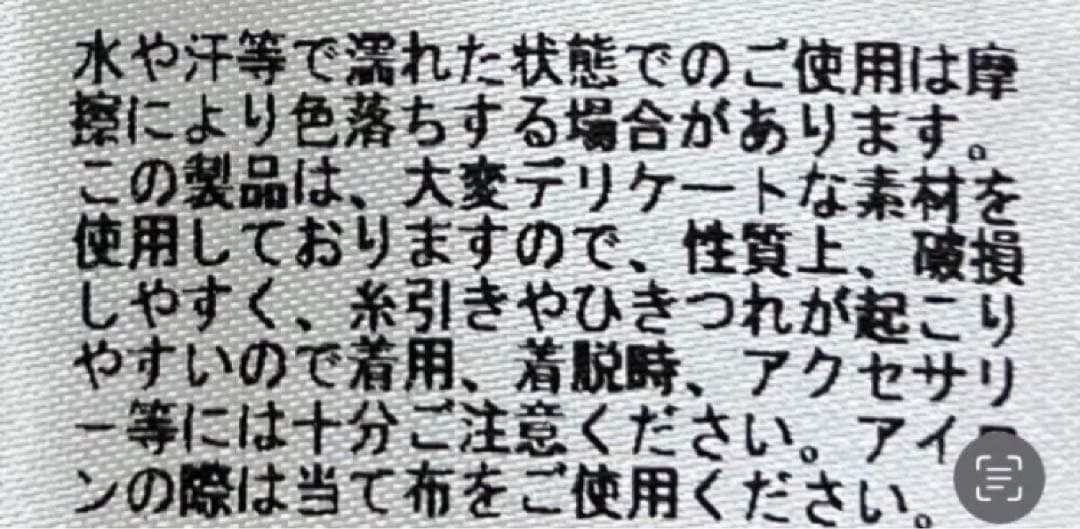 水や汗等で濡れた状態でのご使用は摩
擦により色落ちする場合があります。
この製品は、大変デリケートな素材を
使用しておりますので、性質上、破損
しやすく、糸引きやひきつれが起こり
やすいので着用、着脱時、アクセサリ
ー等には十分ご注意ください。アイロ
ンの際は当て布をご使用ください。